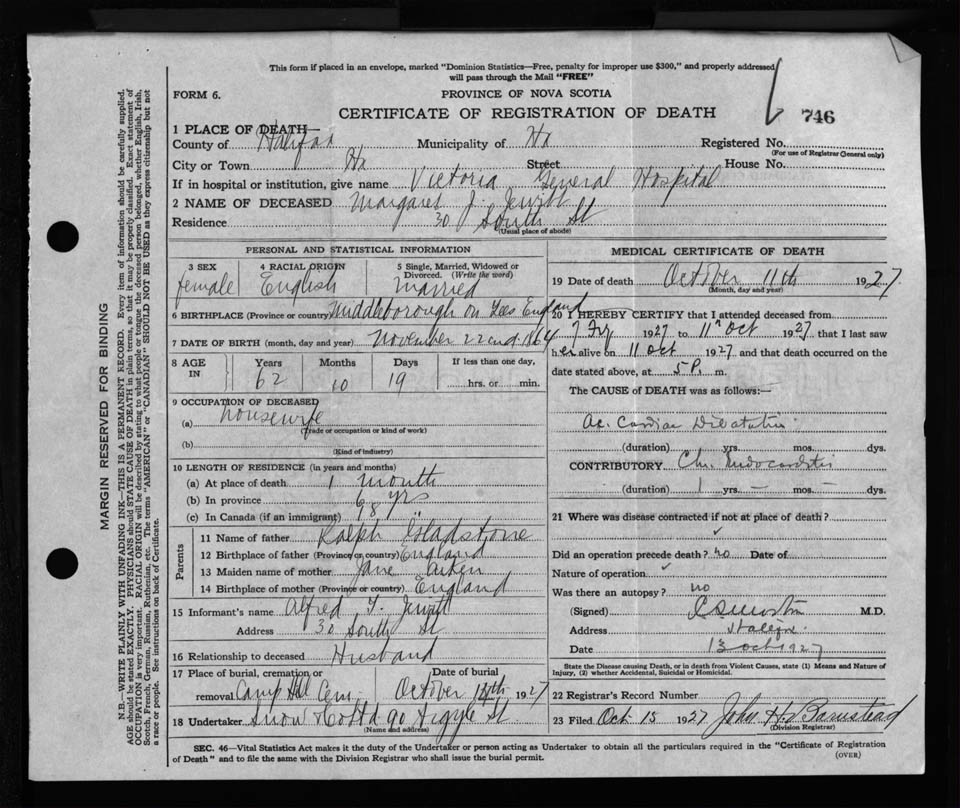 This form if placed in an envelope, marked "Dominion Statistics—Free, penalty for improper use $300," and properly addressed
will pass through the Mail "FREE"
FORM 6.
PROVINCE OF NOVA SCOTIA
CERTIFICATE OF REGISTRATION OF DEATH
746
1 PLACE OF DEATH—
County of Halifax Municipality of Hx Registered No.
(For use of Registrar General only)
City or Town Hx Street House No.
If in hospital or institution, give name Victoria General Hospital
2 NAME OF DECEASED Margaret J. Jewitt
Residence 30 South St
(Usual place of abode)
PERSONAL AND STATISTICAL INFORMATION
3 SEX 4 RACIAL ORIGIN 5 Single, Married, Widowed or
Divorced. (Write the word)
female English married
6 BIRTHPLACE (Province or country) Middleborough on Tees England
7 DATE OF BIRTH (month, day and year) November 22nd 1864
8 AGE IN Years Months Days If less than one day,
62 10 19 hrs. or min.
9 OCCUPATION OF DECEASED
(a) housewife
(Trade or occupation or kind of work)
(b)
(Kind of industry)
10 LENGTH OF RESIDENCE (in years and months)
(a) At place of death 1 month
(b) In province yrs
(c) In Canada (if an immigrant) "
Parents
11 Name of father Ralph Gladstone
12 Birthplace of father (Province or country) England
13 Maiden name of mother Jane Aiken
14 Birthplace of mother (Province or country) England
15 Informant's name Alfred T. Jewitt
Address 30 South St
16 Relationship to deceased Husband
17 Place of burial, cremation or Date of burial
removal Camp Hill Cem. October 1927
18 Undertaker Snow & Co Ltd 90 Argyle St
(Name and address)
MEDICAL CERTIFICATE OF DEATH
19 Date of death October 11th 1927
(Month, day and year)
20 I HEREBY CERTIFY that I attended deceased from
1927 to 11 Oct 1927, that I last saw
her alive on 11 oct 1927 and that death occurred on the
date stated above, at 5 P. m.
The CAUSE of DEATH was as follows:—
Ac. Cardiac Dilatation
(duration) yrs. mos. dys.
CONTRIBUTORY Chr. Endocarditis
(duration) 1 yrs. — mos. — dys.
21 Where was disease contracted if not at place of death?
Did an operation precede death? no Date of
Nature of operation
Was there an autopsy? no
(Signed) M.D.
Address Halifax
Date 13 oct 1927
State the Disease causing Death, or in death from Violent Causes, state (1) Means and Nature of
Injury, and (2) whether Accidental, Suicidal or Homicidal.
22 Registrar's Record Number
23 Filed Oct 15 1927 John H. Barnstead
(Division Registrar)
SEC. 46—Vital Statistics Act makes it the duty of the Undertaker or person acting as Undertaker to obtain all the particulars required in the "Certificate of Registration
of Death" and to file the same with the Division Registrar who shall issue the burial permit.
(OVER)
MARGIN RESERVED FOR BINDING
N.B.—WRITE PLAINLY WITH UNFADING INK—THIS IS A PERMANENT RECORD. Every item of information should be carefully supplied.
AGE should be stated EXACTLY. PHYSICIANS should STATE CAUSE OF DEATH in plain terms, so that it may be properly classified. Exact statement of
OCCUPATION is very important. RACIAL ORIGIN will be described by stating to what people or tongue the deceased person belonged, whether English, Irish,
Scotch, French, German, Russian, Ruthenian, etc. The terms "AMERICAN" or "CANADIAN" SHOULD NOT BE USED as they express citizenship but not
a race or people. See instructions on back of Certificate.